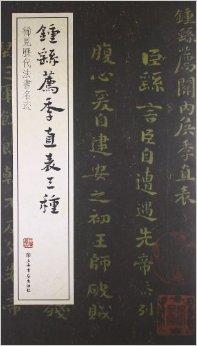 鍾繇薦季直表三種
稀見歷代法書名迹
上海書店出版社
鍾繇薦關內侯季直表
臣繇言臣自遭遇先帝忝列
腹心爰自建安之初王師破賊